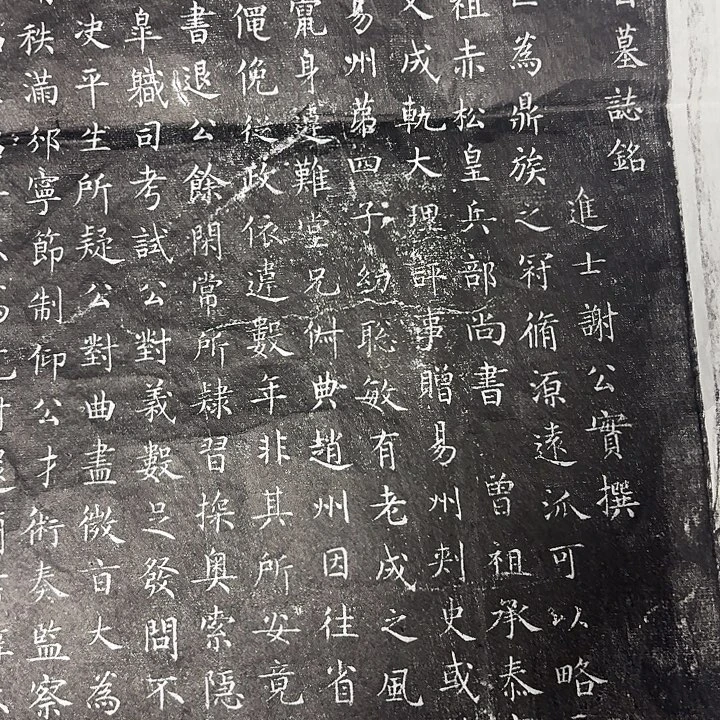 墓誌銘
進士謝公實撰
為鼎族之冠脩源遠派可以略
祖赤松皇兵部尚書 曾祖承泰
文成軌大理評事贈易州刺史或
易州第四子幼聰敏有老成之風
竄身違難堂兄典趙州因往省
僶俛從政依違數年非其所安竟
書退公餘閑常所隸習探奥索隱
臯職司考試公對義數足發問不
決平生所疑公對曲盡微言大為
秩滿邠寧節制仰公才術奏監察